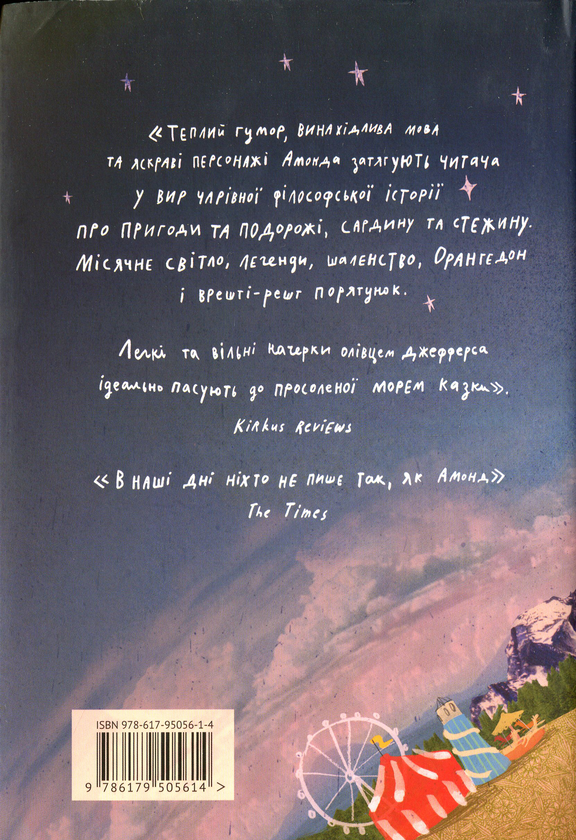 «Теплий гумор, винахідлива мова
та яскраві персонажі Амонда затягують читача
у вир чарівної філософської історії
про пригоди та подорожі, сардину та стежину.
Місячне світло, легенди, шаленство, Орангедон
і врешті-решт порятунок.
Легкі та вільні начерки олівцем Джефферса
ідеально пасують до просоленої морем казки».
Kirkus Reviews
«В наші дні ніхто не пише так, як Амонд»
The Times
ISBN 978-617-95056-1-4
9 786179 505614 >